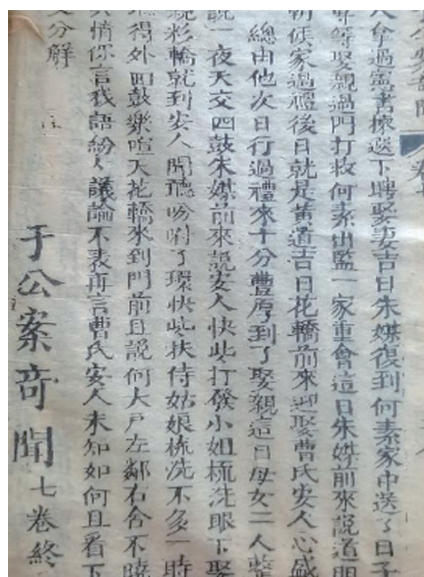 公案奇聞 卷
人拿過憲書揀選下聘娶妻吉日朱媒復到何素家中送了日子
等娶親過門打救何素出監一家重會這日朱媒前來說道明
家過禮後日就是黃道吉日花轎前來迎娶曹氏安人心盛
總由他次日行過禮來十分豐厚到了娶親這日母女二人
說一夜天交四鼓朱媒前來說安人快些打發小姐梳洗眼下娶
彩轎就到安人聞聽吩咐了環快些扶侍姑娘梳洗不多一時
聽得外面鼓樂喧天花轎來到門前且說何大戶左鄰右舍不曉
情你言我語紛人議論不表再言曹氏安人未知如何且看下
文分解
于公案奇聞 七卷終